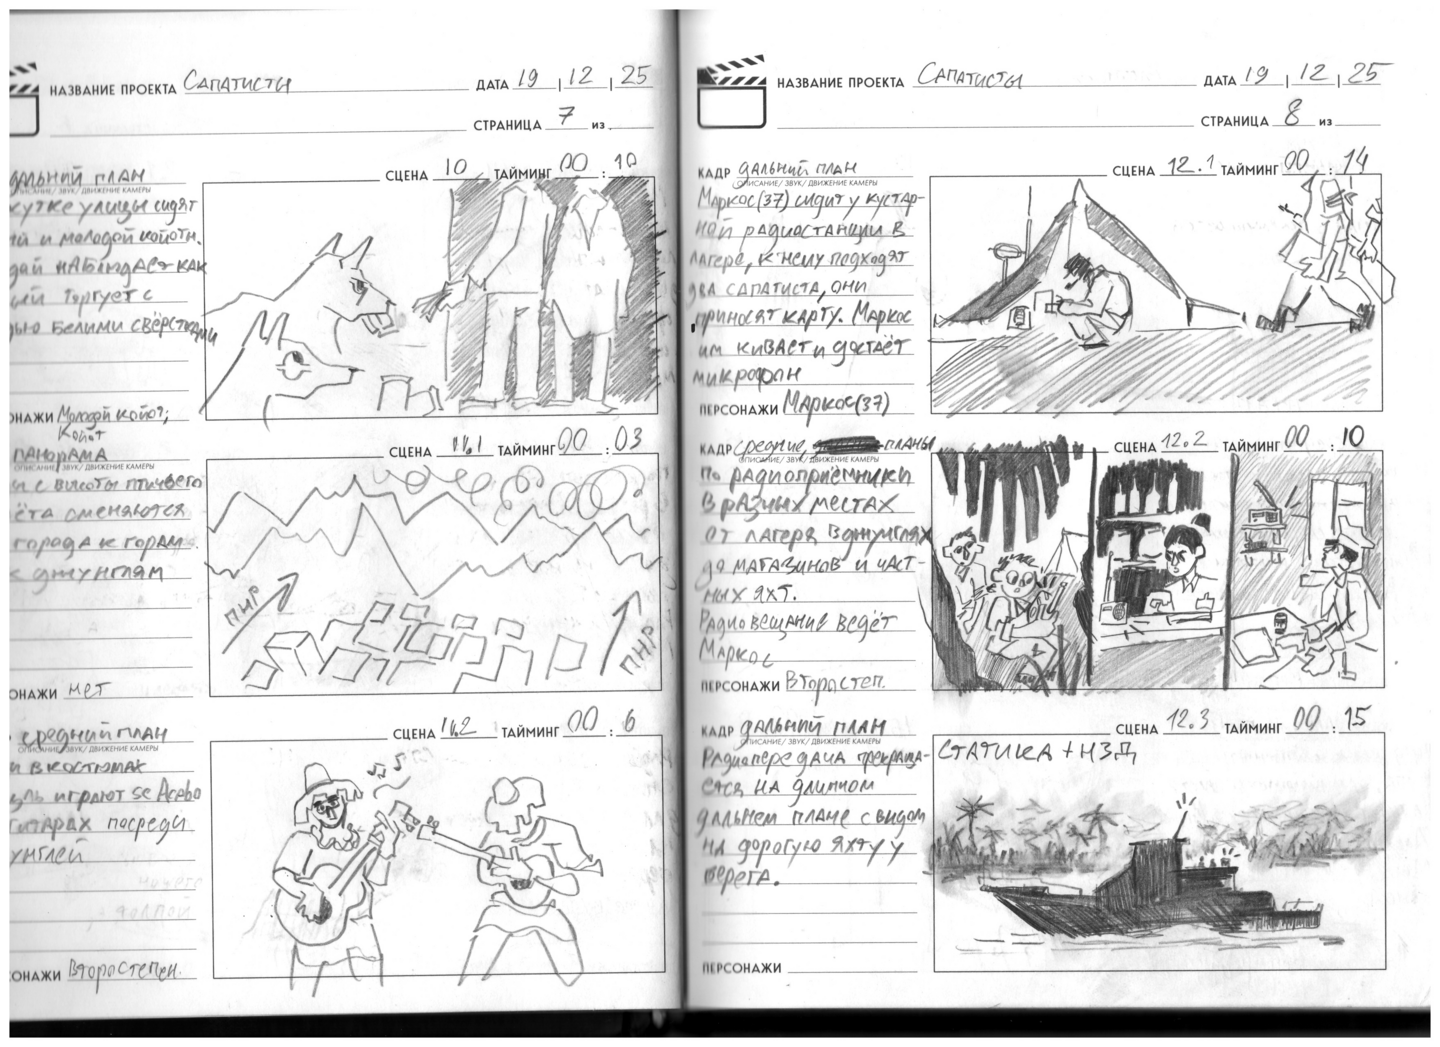 НАЗВАНИЕ ПРОЕКТА Сапатисты ДАТА 19 | 12 | 25
СТРАНИЦА 7 из
дальний план СЦЕНА 10 ТАЙМИНГ 00 : 10
ОПИСАНИЕ/ ЗВУК/ ДВИЖЕНИЕ КАМЕРЫ
улицы сидят
и молодой койоты.
наблюдает как
торгует с
белыми
ОНАЖИ Молодой койот;
Койот
панорама СЦЕНА 11.1 ТАЙМИНГ 00 : 03
ОПИСАНИЕ/ ЗВУК/ ДВИЖЕНИЕ КАМЕРЫ
с высоты птичьего
ёта сменяются
города к горам.
к джунглям
ПНР
ПНР
ОНАЖИ нет
средний план СЦЕНА 11.2 ТАЙМИНГ 00 : 6
ОПИСАНИЕ/ ЗВУК/ ДВИЖЕНИЕ КАМЕРЫ
в костюмах
играют
гитарах посреди
унглей
ОНАЖИ Второстепен.
НАЗВАНИЕ ПРОЕКТА Сапатисты ДАТА 19 | 12 | 25
СТРАНИЦА 8 из
КАДР дальний план СЦЕНА 12.1 ТАЙМИНГ 00 : 14
ОПИСАНИЕ/ ЗВУК/ ДВИЖЕНИЕ КАМЕРЫ
Маркос(37) сидит у кустар-
ной радиостанции в
лагере, к нему подходят
два сапатиста, они
приносят карту. Маркос
им кивает и достаёт
микрофон
ПЕРСОНАЖИ Маркос(37)
КАДР средние, планы СЦЕНА 12.2 ТАЙМИНГ 00 : 10
ОПИСАНИЕ/ ЗВУК/ ДВИЖЕНИЕ КАМЕРЫ
По радиоприёмники
в разных местах
от лагеря в джунглях
до магазинов и част-
ных яхт.
Радиовещание ведёт
Маркос
ПЕРСОНАЖИ Второстеп.
КАДР дальний план СЦЕНА 12.3 ТАЙМИНГ 00 : 15
ОПИСАНИЕ/ ЗВУК/ ДВИЖЕНИЕ КАМЕРЫ
Радиопередача прекраща-
ется на длинном
дальнем плане с видом
на дорогую яхту у
берега.
СТАТИКА + НЗД
ПЕРСОНАЖИ